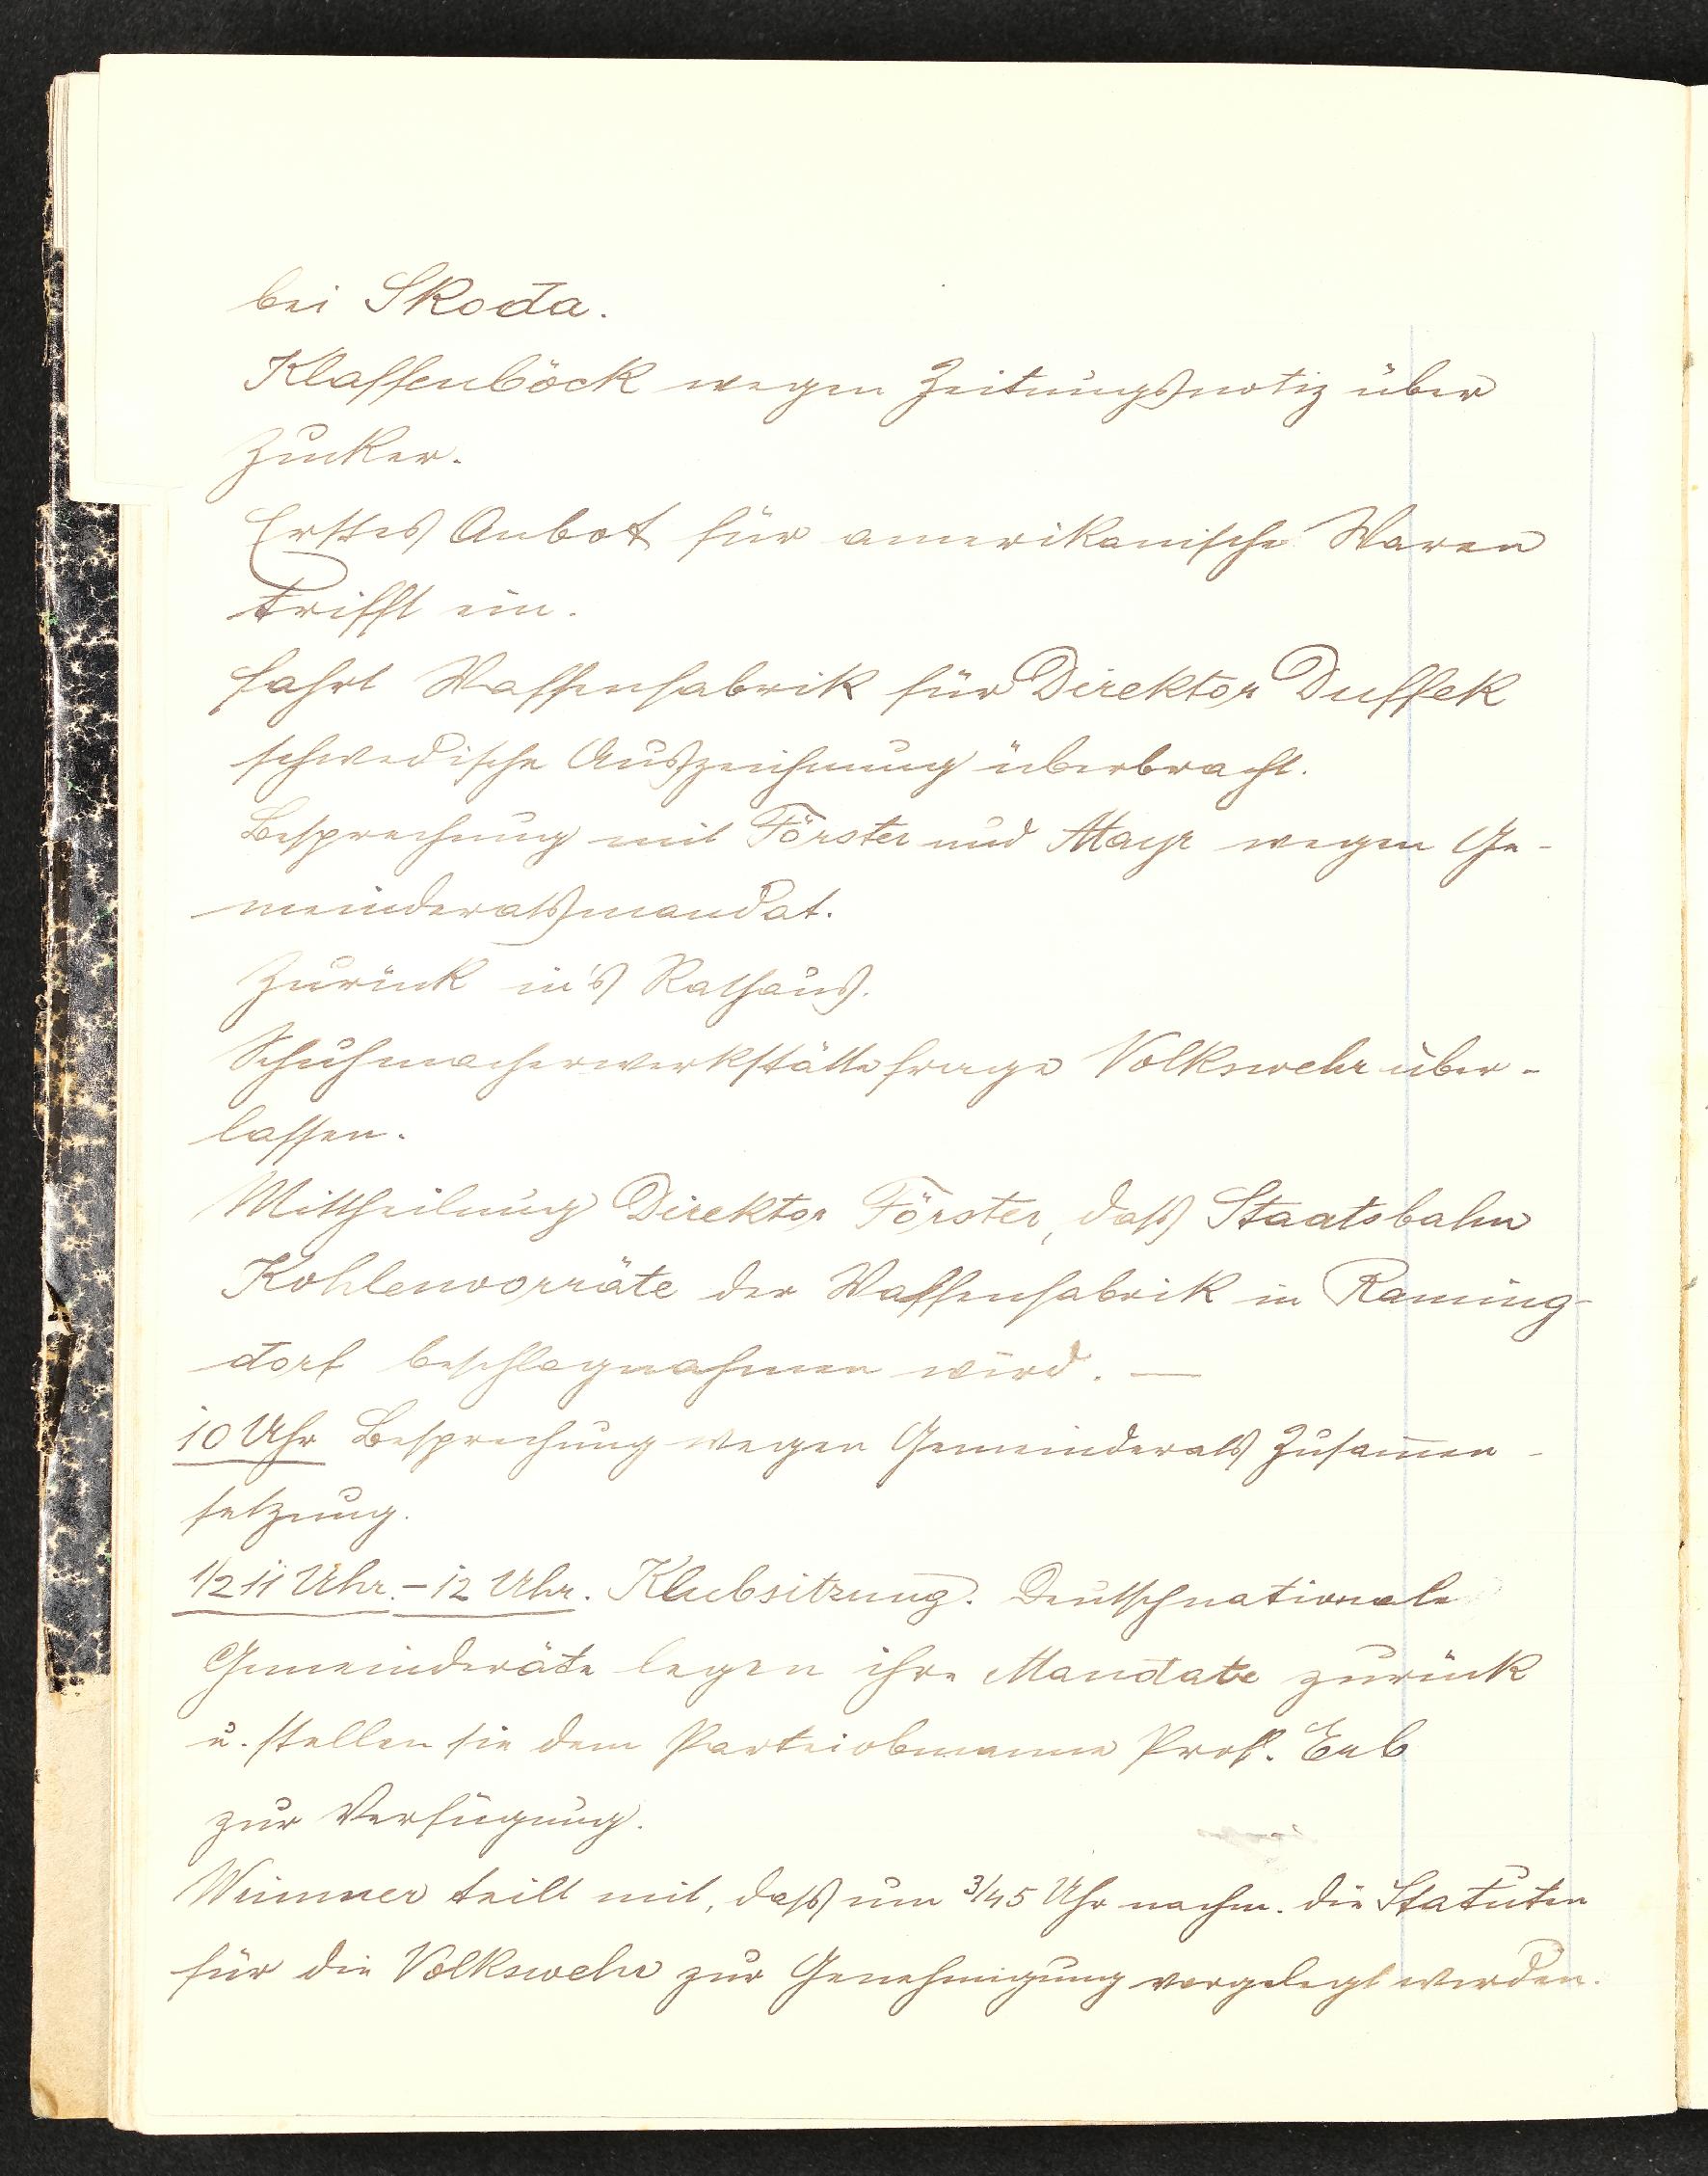 bei Skoda.
Klaffenböck wegen Zeitungsnotiz über
Zucker.
Erstes Anbot für amerikanische Waren
trifft ein.
Fahrt Waffenfabrik für Direktor Duffek
schwedische Auszeichnung überbracht.
Besprechung mit Förster und Mayr wegen Ge-
meinderatsmandat.
Zurück in's Rathaus.
Schuhmacherwerkstättefrage Volkswehr über-
lassen.
Mittheilung Direktor Förster, daß Staatsbahn
Kohlenvorräte der Waffenfabrik in Raming-
dorf beschlagnahmen wird. —
10 Uhr Besprechung wegen Gemeinderats Zusam̄en-
setzung.
1/2 11 Uhr. - 12 Uhr. Klubsitzung. Deutschnationale
Gemeinderäte legen ihre Mandate zurück
u. stellen sie dem Parteiobmanne Prof. Erb
zur Verfügung.
Wimmer teilt mit, daß um 3/4 5 Uhr nachm. die Statuten
für die Volkswehr zur Genehmigung vorgelegt werden.